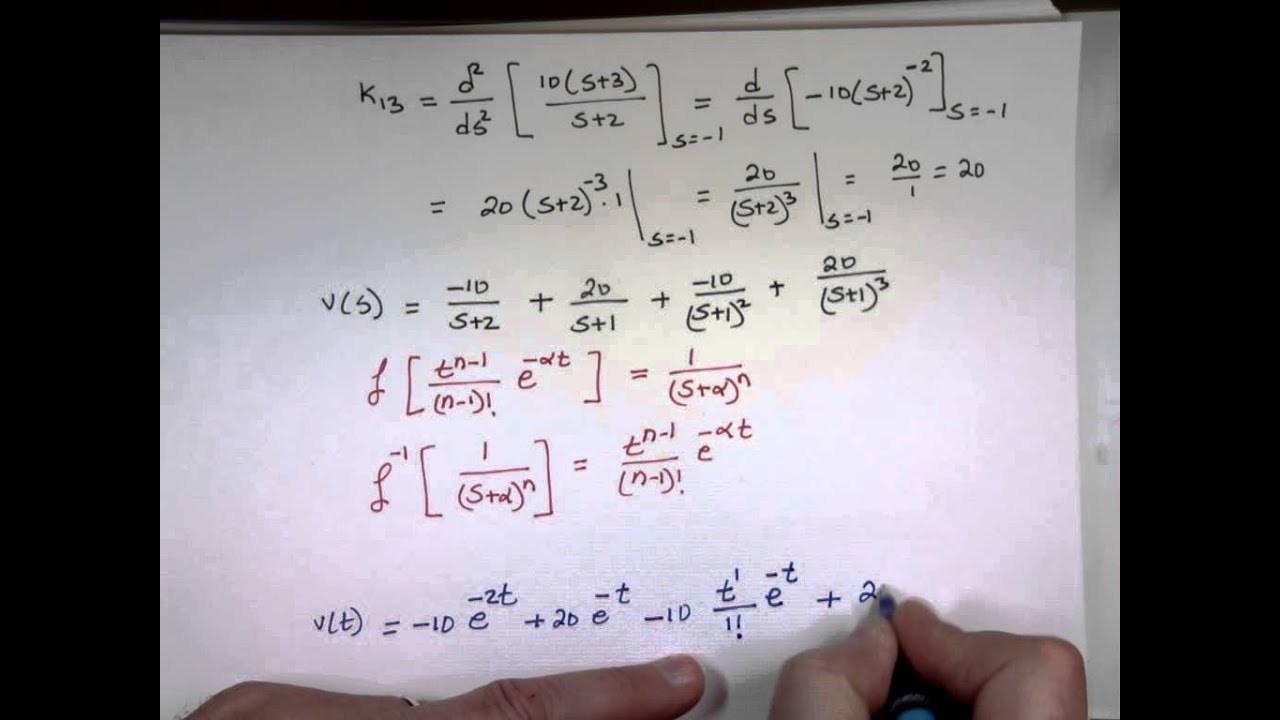 K₁₃ = d²/ds² [ 10(s+3) / s+2 ]s=-1 = d/ds [ -10(s+2)⁻² ]s=-1
= 20(s+2)⁻³·1 |s=-1 = 20/(s+2)³ |s=-1 = 20/1 = 20
V(s) = -10/s+2 + 20/s+1 + -10/(s+1)² + 20/(s+1)³
ℒ [ tⁿ⁻¹/(n-1)! e^-αt ] = 1/(s+α)ⁿ
ℒ⁻¹ [ 1/(s+α)ⁿ ] = tⁿ⁻¹/(n-1)! e^-αt
v(t) = -10 e^-2t + 20 e^-t -10 t¹/1! e^-t + 2